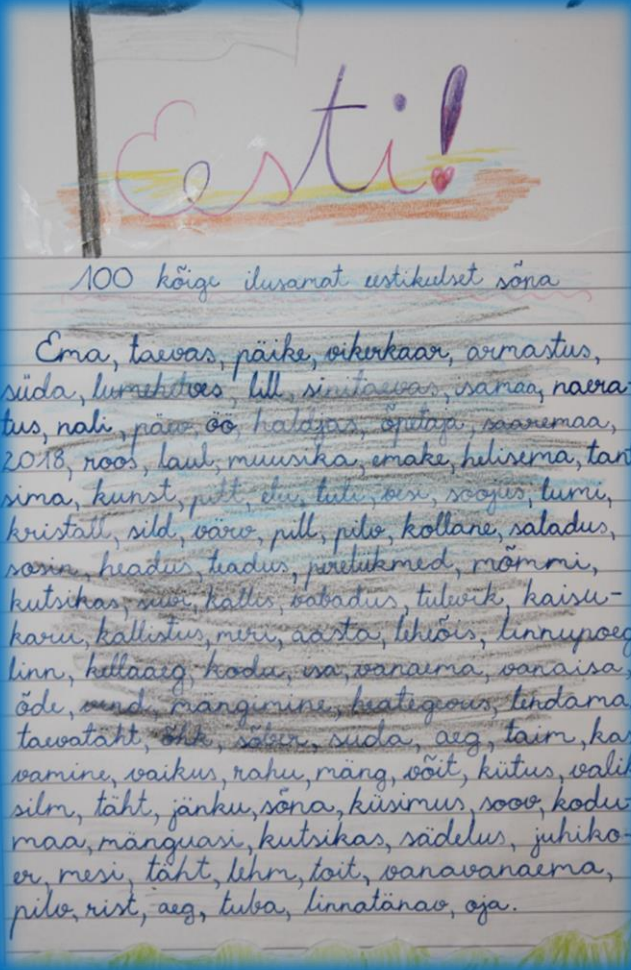 Eesti!
100 kõige ilusamat eestikeelset sõna
Ema, taevas, päike, vikerkaar, armastus,
süda, lumehelves, lill, sinitaevas, isamaa, naera-
tus, nali, päev, öö, haldjas, õpetaja, saaremaa,
2018, roos, laul, muusika, emake, helisema, tant
sima, kunst, pilt, elu, tuli, vesi, soojus, lumi,
kristall, sild, värv, pill, pilv, kollane, saladus,
sosin, headus, teadus, pereliikmed, mõmmi,
kutsikas, suvi, kallis, vabadus, tulevik, kaisu-
karu, kallistus, meri, aasta, leheõis, linnupoeg
linn, kellaaeg, kodu, isa, vanaema, vanaisa,
õde, vend, mängimine, heategevus, lendama
taevatäht, õhk, sõber, süda, aeg, taim, kas
vamine, vaikus, rahu, mäng, võit, kütus, valik
silm, täht, jänku, sõna, küsimus, soov, kodu-
maa, mänguasi, kutsikas, sädelus, juhiko-
er, mesi, täht, lehm, toit, vanavanaema,
pilv, rist, aeg, tuba, linnatänav, oja.